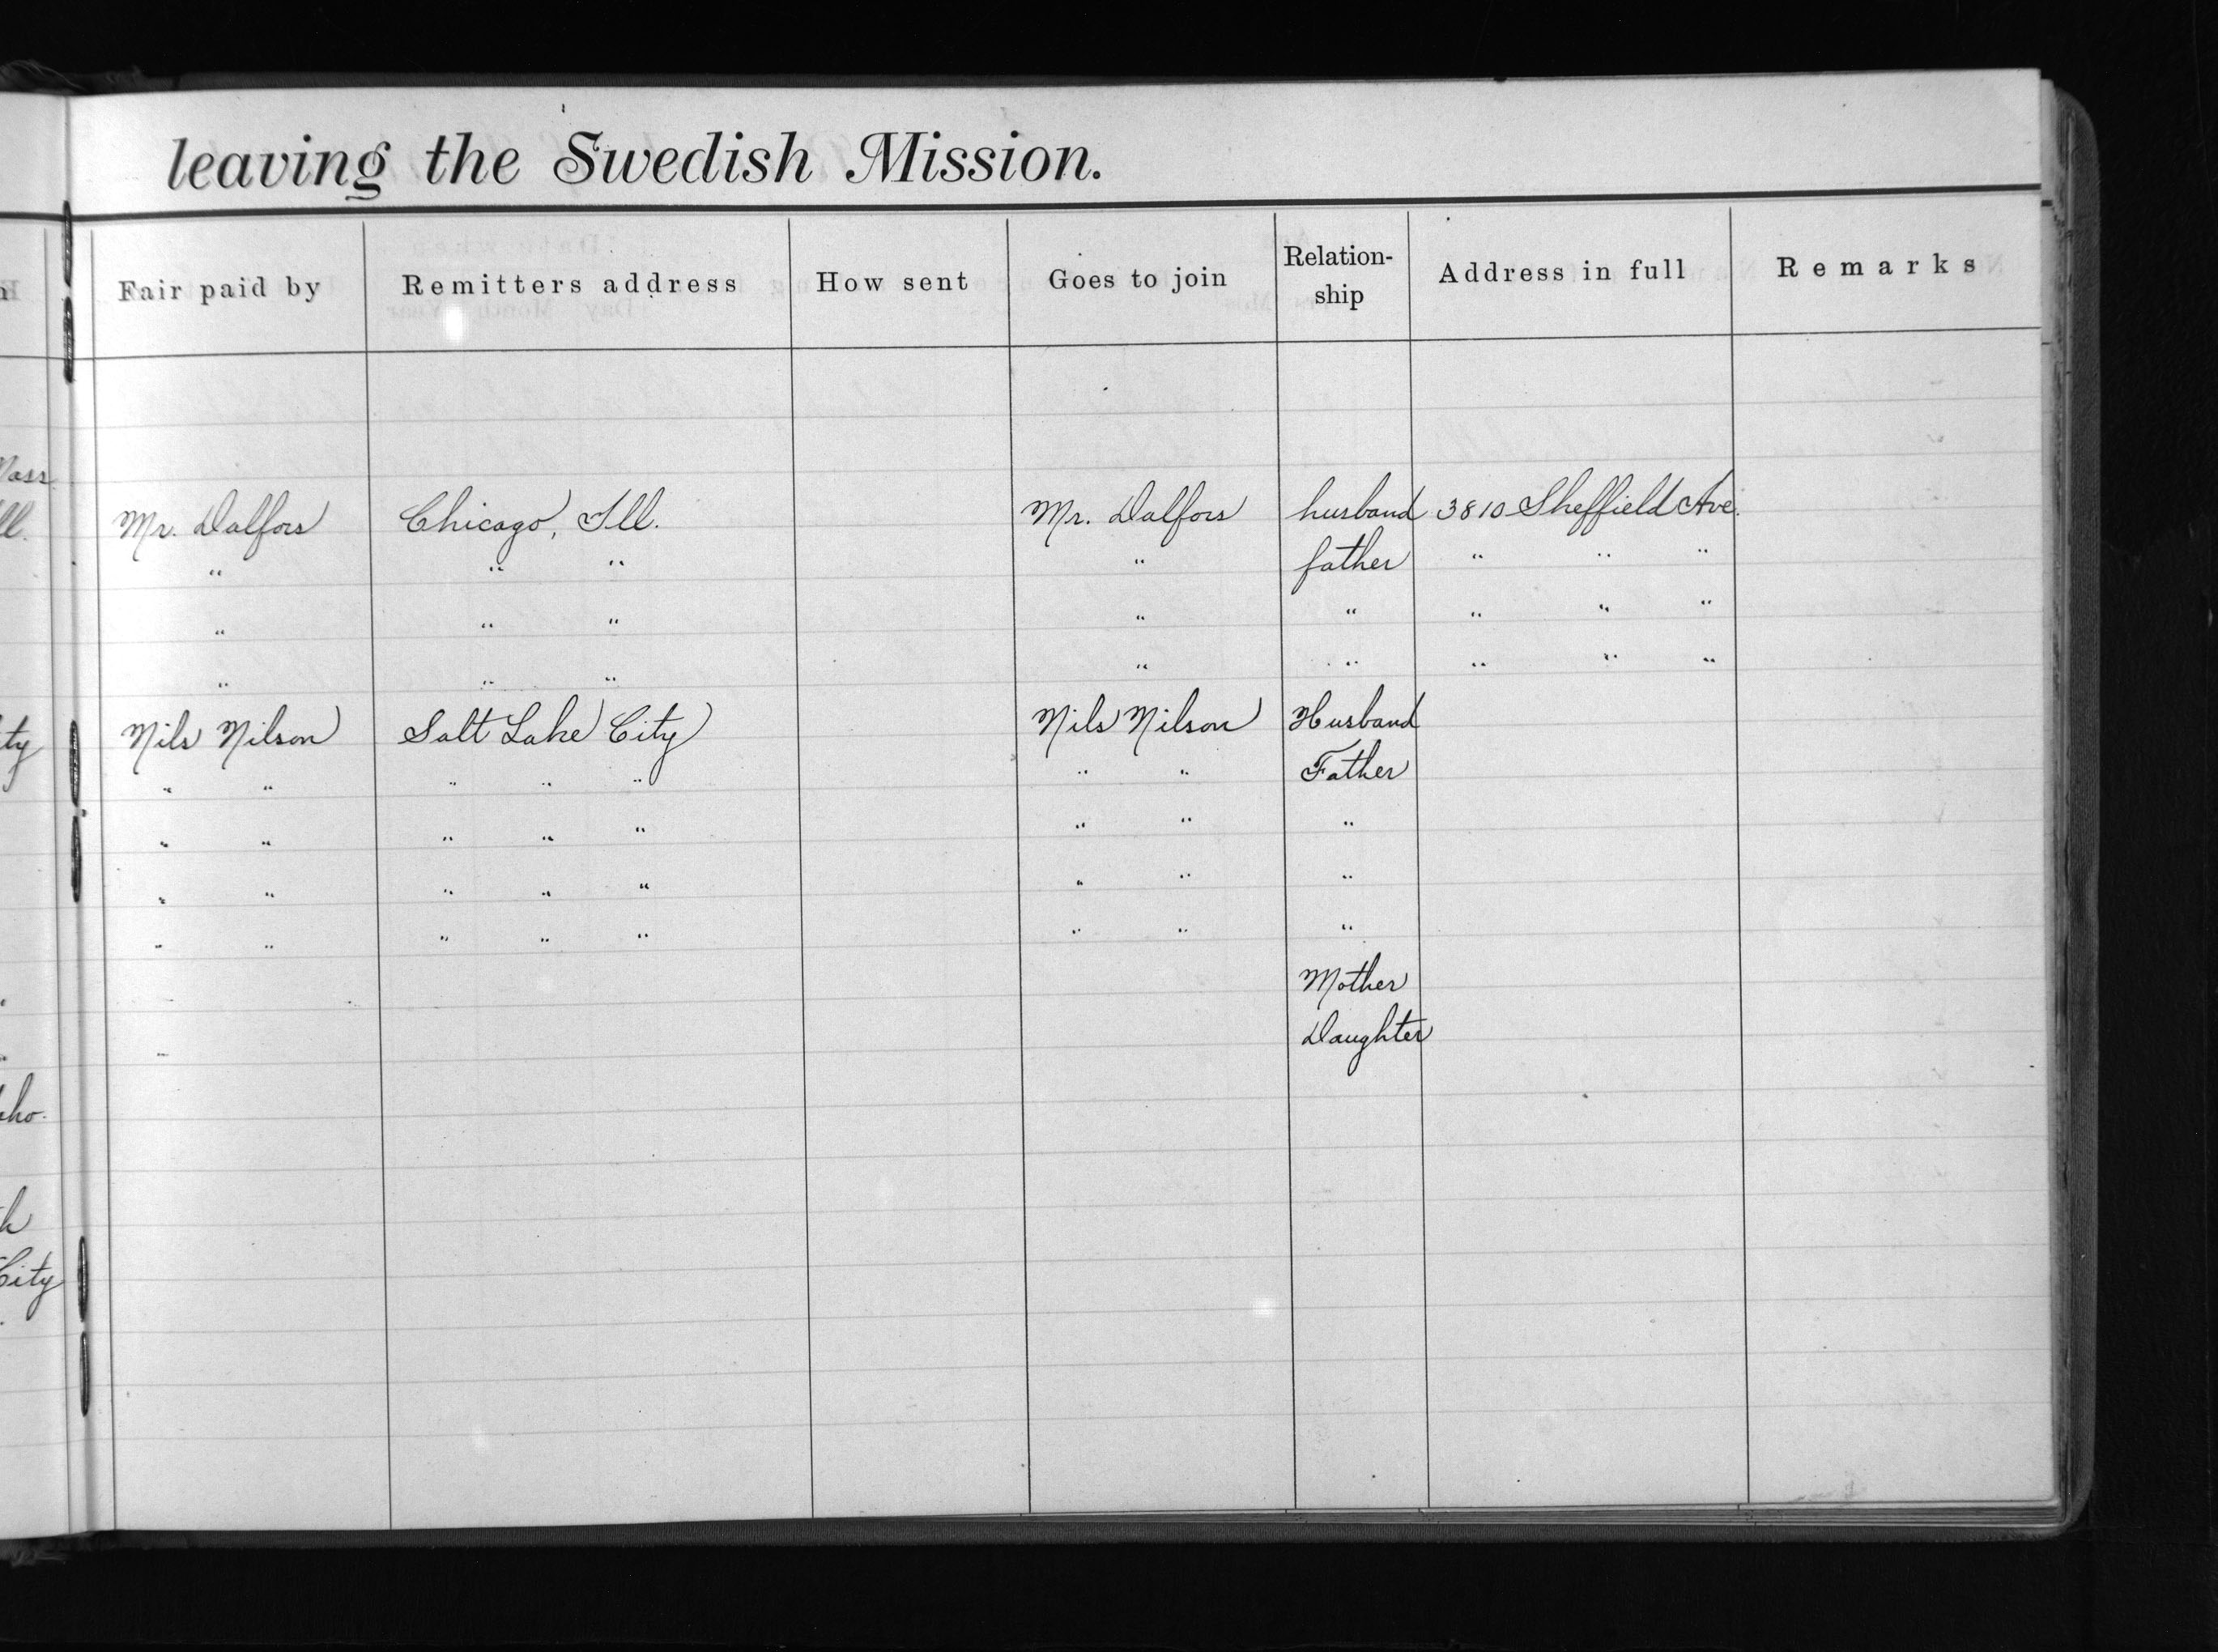 leaving the Swedish Mission.
Fair paid by Remitters address How sent Goes to join Relation-ship Address in full Remarks
Mass.
Ill. Mr. Dalfors Chicago, Ill. Mr. Dalfors husband 3810 Sheffield Ave.
" " " " father " " "
" " " " " " " "
" " " " " " " "
City Nils Nilson Salt Lake City Nils Nilson Husband
" " " " " " " Father
" " " " " " " "
" " " " " " " "
" " " " " " " "
Mother
" Daughter
City